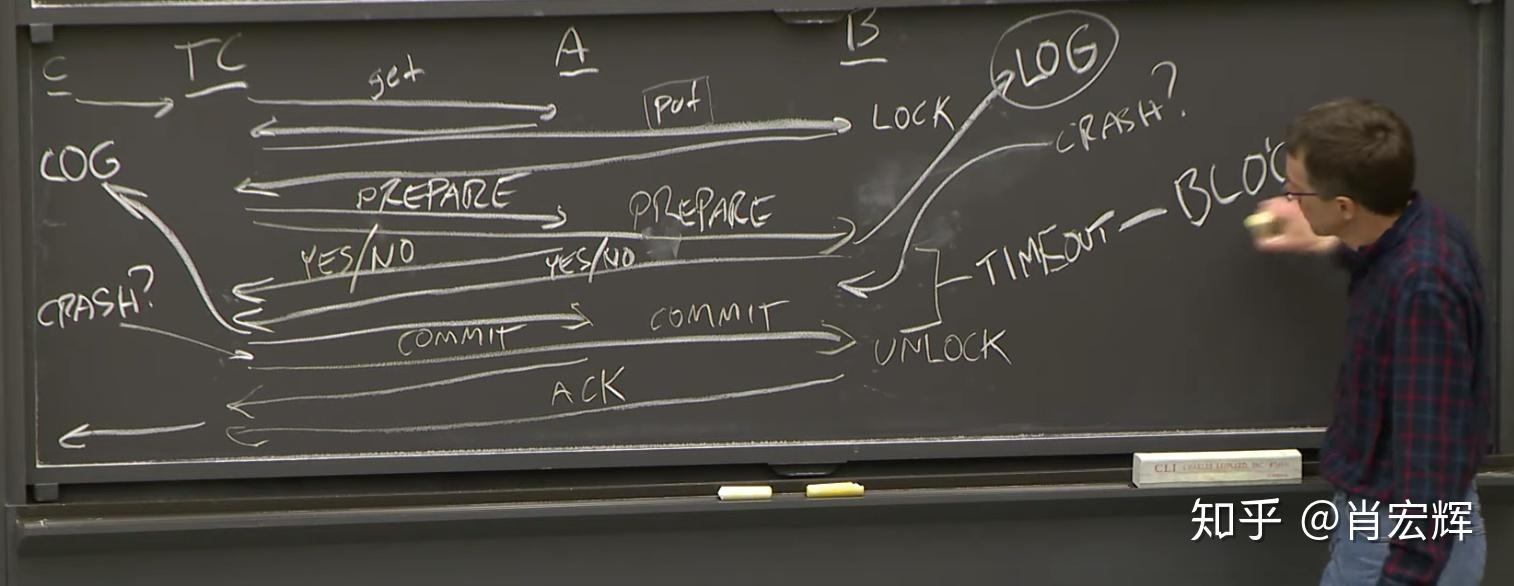 C TC A B
get
put
LOCK
LOG
CRASH?
LOG
PREPARE
PREPARE
YES/NO
YES/NO
TIMEOUT - BLOC
CRASH?
COMMIT
COMMIT
UNLOCK
ACK
CLI
知乎 @肖宏辉